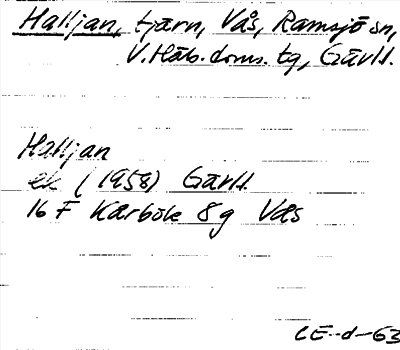 Halljan, tjärn, Vås, Ramsjö sn,
V. Häls. doms. tg, Gävlt.
Halljan
ek (1958) Gävlt.
16 F Karböle 8 g Vås
CE-d-63